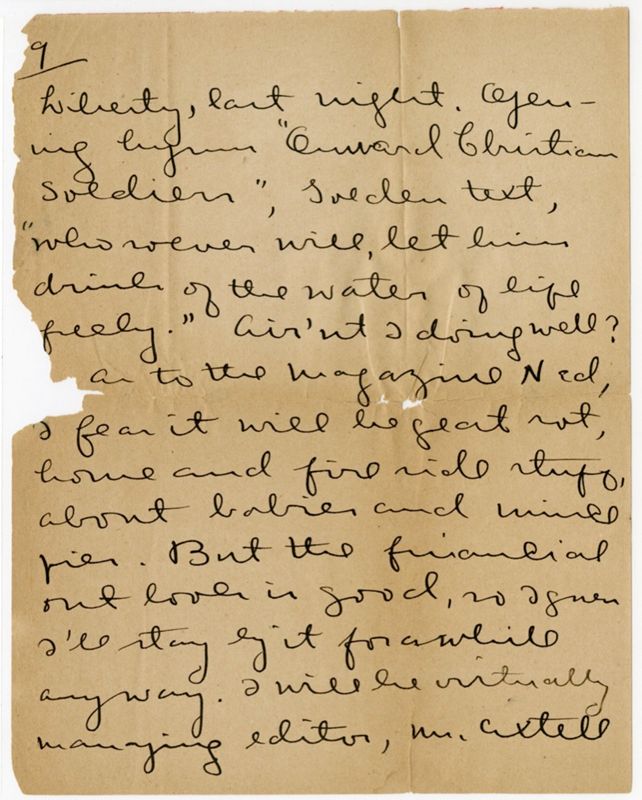 9
Liberty, last night. Open-
ing hymn "Onward Christian
Soldiers", Golden text,
"whosoever will, let him
drink of the water of life
freely." Ain't I doing well?
As to the magazine Ned,
I fear it will be great rot,
home and fire side stuff,
about babies and mince
pies. But the financial
out look is good, so I guess
I'll stay by it for awhile
anyway. I will be virtually
managing editor, Mr. Axtell